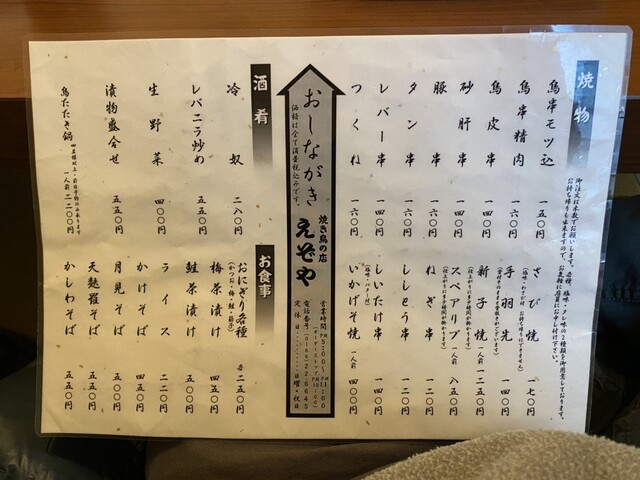 焼物
御注文は本数でお願いします。
お持ち帰りも出来ますので、お気軽に店員にお申し付け下さい。
鳥串モツ込 一五〇円
鳥串精肉 一六〇円
鳥皮串 一四〇円
砂肝串 一四〇円
豚串 一六〇円
タン串 一六〇円
レバー串 一四〇円
つくね 一六〇円
さび焼 一七〇円
手羽先 一四〇円
新子焼 一人前 一二五〇円
スペアリブ 一人前 八五〇円
ねぎ串 一二〇円
ししとう串 一四〇円
しいたけ串 一四〇円
いかげそ焼 一人前 四〇〇円
おしながき
価格は全て消費税込みです。
焼き鳥の店
えぞや
営業時間
電話番号
定休日 日曜・祝日
酒肴
冷奴 二八〇円
レバニラ炒め 五五〇円
生野菜 四〇〇円
漬物盛合せ 五五〇円
鳥たたき鍋 一人前 二二〇〇円
お食事
おにぎり各種 各二五〇円
(かつお・梅・鮭・筋子)
梅茶漬け 四五〇円
鮭茶漬け 五五〇円
ライス 二二〇円
かけそば 四五〇円
月見そば 五〇〇円
天麩羅そば 五五〇円
かしわそば 五五〇円